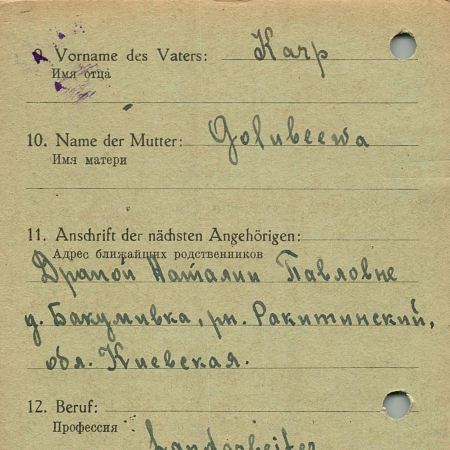 9. Vorname des Vaters: Karp
Имя отца
10. Name der Mutter: Golubeewa
Имя матери
11. Anschrift der nächsten Angehörigen:
Адрес ближайших родственников
Драпой Наталии Павловне
д. Бакумивка, рн. Ракитинский,
обл. Киевская.
12. Beruf:
Профессия
Landarbeiter